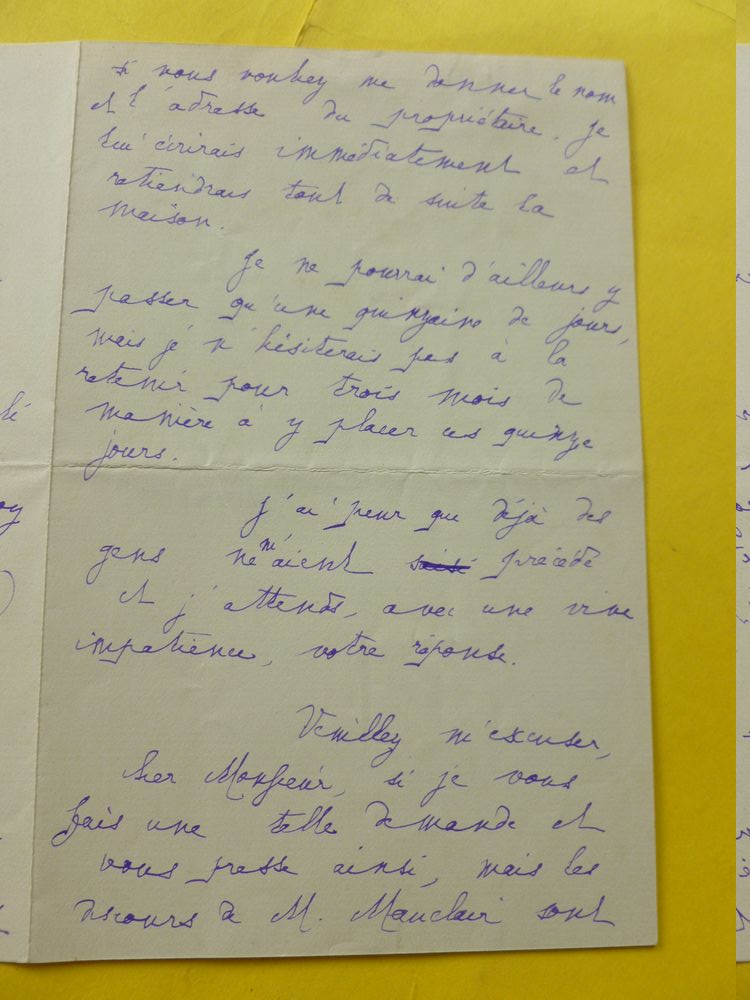 si vous voulez me donner le nom
et l'adresse du propriétaire. Je
lui écrirais immédiatement et
retiendrais tout de suite la
maison.
Je ne pourrai d'ailleurs y
passer qu'une quinzaine de jours,
mais je n'hésiterais pas à la
retenir pour trois mois de
manière à y placer ces quinze
jours.
J'ai peur que déjà des
gens ne m'aient précédé
et j'attends, avec une vive
impatience, votre réponse.
Veuillez m'excuser,
cher Monsieur, si je vous
fais une telle demande et
vous presse ainsi, mais les
discours de M. Mauclair sont